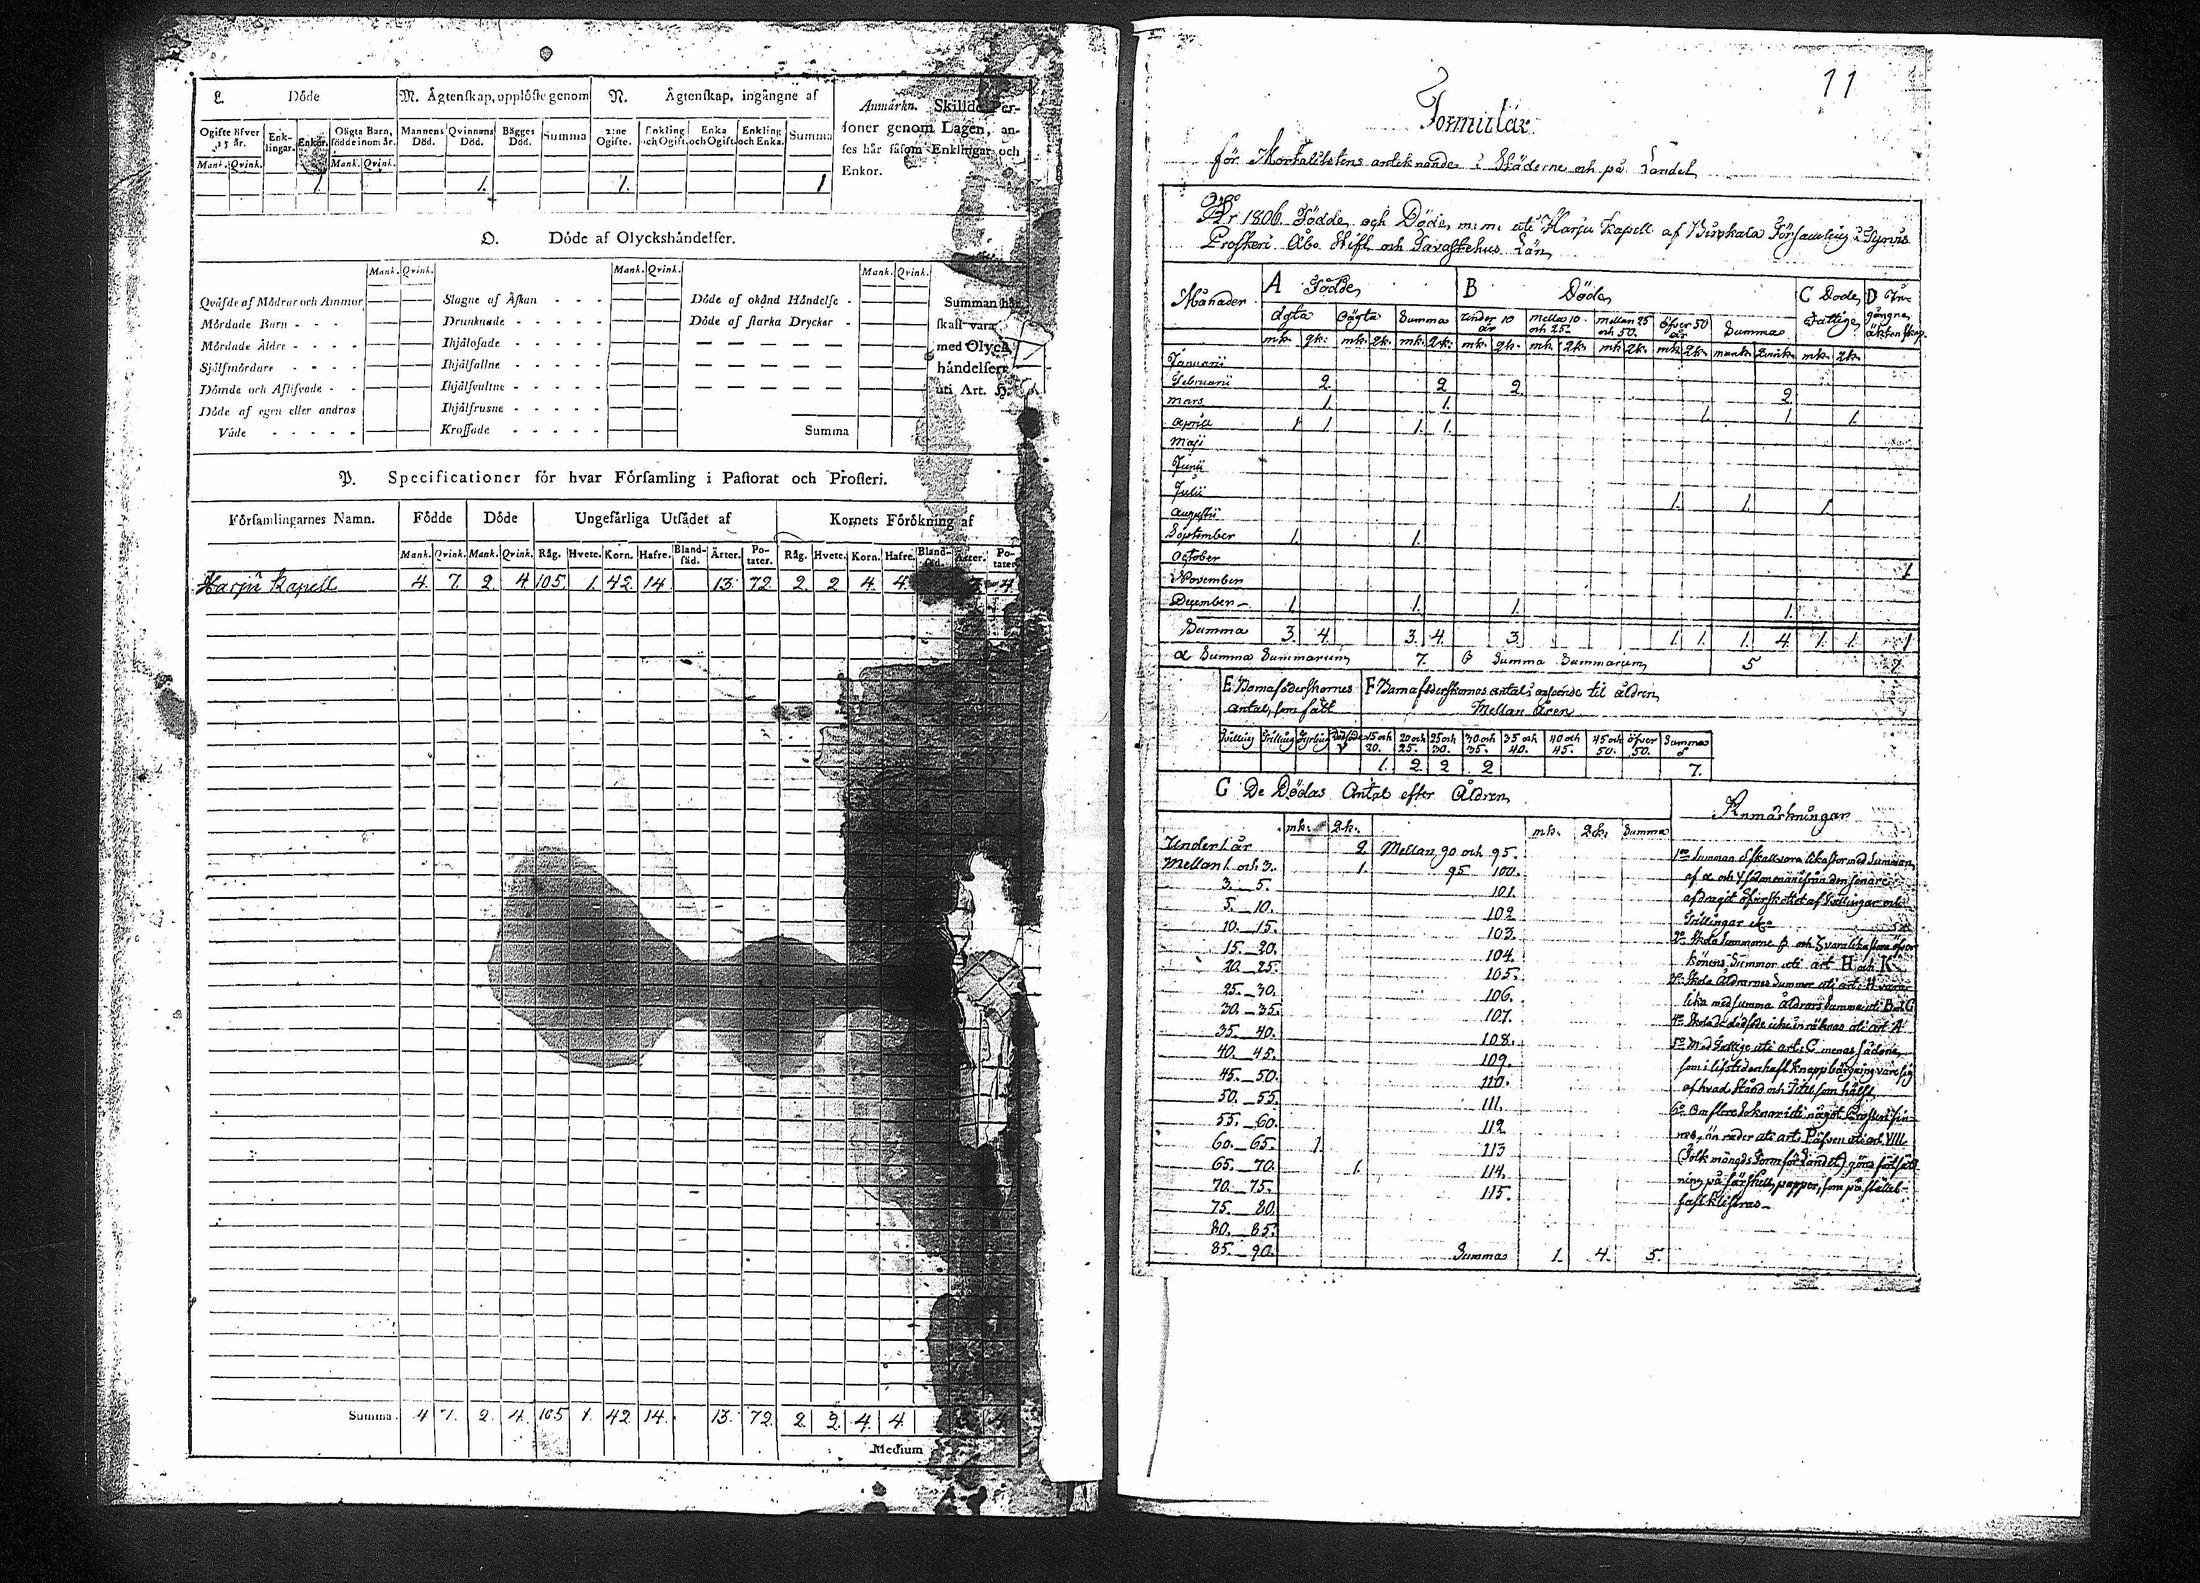 L. Döde M. Ägtenskap, upplöste genom N. Ägtenskap, ingångne af Anmärkn. Skillde Per-
soner genom Lagen, an-
ses här såsom Enklingar och
Enkor.
Ogifte öfver 15 år. Enk-lingar. Enkor. Oägta Barn, födde inom år. Mannens Död. Qvinnans Död. Bägges Död. Summa 2:ne Ogifte. Enkling och Ogift. Enka och Ogift. Enkling och Enka. Summa
Mank. Qvink. Mank. Qvink.
1. 1. 1. 1
O. Döde af Olyckshändelser.
Mank. Qvink. Mank. Qvink. Mank. Qvink.
Qväfde af Mödrar och Ammor Slagne af Åskan Döde af okänd Händelse Summan här
Mördade Barn Drunknade Döde af starka Drycker skall vara
Mördade Äldre Ihjälosade med Olycks
Sjelfmördare Ihjälfallne händelser
Dömde och Aflifvade Ihjälsvultne uti Art. H.
Döde af egen eller andras Ihjälfrusne
Våde Krossade Summa
P. Specificationer för hvar Församling i Pastorat och Prosteri.
Församlingarnes Namn. Födde Döde Ungefärliga Utsädet af Kornets Förökning af
Mank. Qvink. Mank. Qvink. Råg. Hvete. Korn. Hafre. Bland-säd. Ärter. Po-tater. Råg. Hvete. Korn. Hafre. Bland-säd. Ärter. Po-tater.
Harju Kapell 4. 7. 2. 4. 105. 1. 42. 14. 13. 72 2. 2 4. 4. 4.
Summa. 4 7. 2. 4. 105 1. 42 14. 13. 72. 2. 2. 4. 4.
Medium
11
Formulär
för Mortalitetens antecknande i Städerne och på Landet
År 1806. Födde och Döde m.m. uti Harju Kapell af Birkala Församling i Tyrvis
Prosteri Åbo Stift och Tavastehus Län
Månader A Födde B Döde C Döde Fattige D In-gångne äktenskap.
ägta oägta Summa under 10 år mellan 10 och 25. mellan 25 och 50. öfver 50 år Summa
mk. qk. mk. qk. mk. qk. mk. qk. mk. qk. mk. qk. mk. qk. mank. qvink. mk. qk.
Januarii
Februarii 2. 2 2.
Mars 1. 1. 2
Aprill 1. 1. 1. 1. 1. 1. 1.
Maji
Junii
Julii
Augustii 1. 1. 1.
September 1. 1.
October
November 1
December 1. 1. 1. 1.
Summa 3. 4. 3. 4. 3. 1. 1. 1. 4 1. 1. 1
α Summa Summarum 7. β Summa Summarum 5
E Barnaföderskornes F Barnaföderskornas antal i anseende til åldren
Antal, som fått Mellan Åren
Tvilling Trilling Fyrling Dödföde 15 och 20. 20 och 25. 25 och 30. 30 och 35. 35 och 40. 40 och 45. 45 och 50. öfver 50. Summa
1. 2. 2 2 7.
G De Dödas Antal efter Åldren Anmärkningar
mk. qk. mk. qk. Summa
Under 1 år 2 Mellan 90 och 95.
Mellan 1. och 3. 1. 95 100.
3. 5. 101.
5. 10. 102
10. 15. 103.
15. 20. 104.
20. 25. 105.
25. 30. 106.
30. 35. 107.
35. 40. 108.
40. 45. 109.
45. 50. 110.
50. 55. 111.
55. 60. 112
60. 65. 1. 113
65. 70. 1. 114.
70. 75. 115.
75. 80.
80. 85.
85. 90. Summa 1. 4. 5.
1mo Summan δ skall vara lika stor med Summan
af α och γ sedan man ifrån den senare
afdragit öfverskottet af Tvillingar och
Trillingar etc.
2o Skola Summorne β och ζ vara lika stora öfver
könens Summor uti art H och K
3o Skola Åldrarnes Summor uti art. H vara
lika med summa Åldrars Summa uti B och G
4o Skola de dödföde icke inräknas uti art A
5o Med Fattige uti art. C menas sådane,
som i lifstiden haft knapp bärgning vare sig
af hvad Stånd och Titel som hälst
6o Om flere Soknar uti något Prosteri fin-
nas, än rader uti art. P äfven uti art VIII.
(Folkmängds Form för Landet) göres fortsätt-
ning på särskilt papper, som på stället
fast klistras